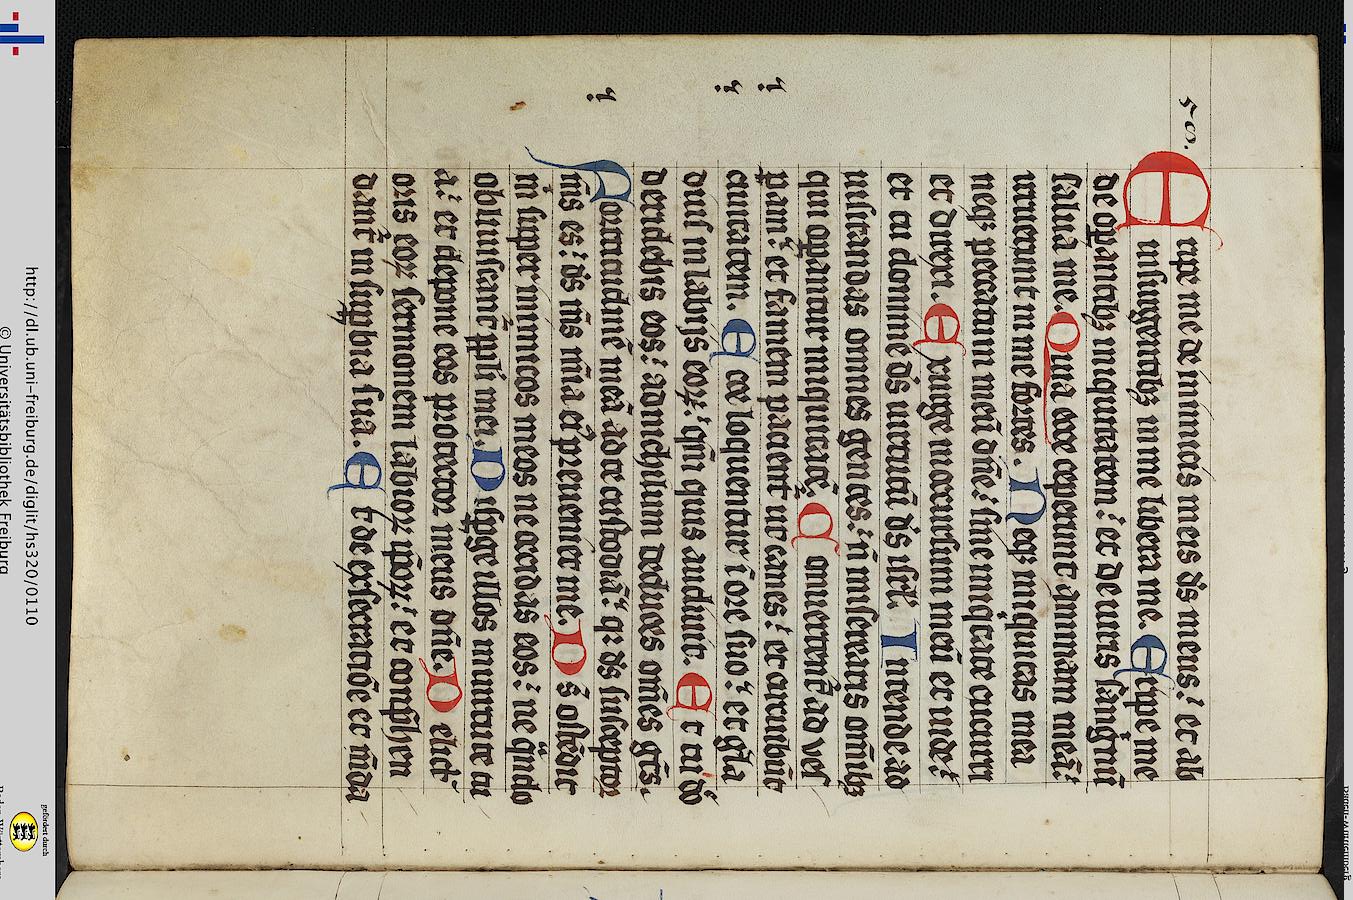 Eripe me de inimicis meis ds meus: et ab
insurgentibꝫ in me libera me. Eripe me
de opantibꝫ iniquitatem: et de uiris sanguinū
salua me. Quia ecce ceperunt animam meā:
irruerunt in me fortes. Neqꝫ iniquitas mea
neqꝫ peccatum meū dñe: sine iniqitate cucurri
et direxi. Exurge in occursum meū et uide:
et tu domine ds uirtutū ds isrl. Intende ad
uisitandas omnes gentes: nō miserearis omibꝫ
qui opantur iniquitatē. Conuertent̄ ad ves
peram: et famem pacient̄ ut canes: et circuibūt
ciuitatem. Ecce loquentur ī ore suo: et gla
dius in labijs eoꝝ: qm̄ quis audiuit. Et tu dō
deridebis eos: ad nichilum deduces oēs gētes.
Fortitudinē meā ad te custodiā: qꝛ ds susceptor
ms es: ds ms mīa eꝰ preueniet me. Ds ostēdit
m super inimicos meos ne occidas eos: ne qn̄do
obliuiscant̄ ppli mei. Disperge illos in uirtute tu
a: et depone eos protector meus dñe. Delict̄
oris eoꝝ sermonem labioꝝ ipoꝝ: et cōprehen
dant̄ in supbia sua. Et de execratiōe et mēda
http://dl.ub.uni-freiburg.de/diglit/hs320/0110
© Universitätsbibliothek Freiburg
gefördert durch